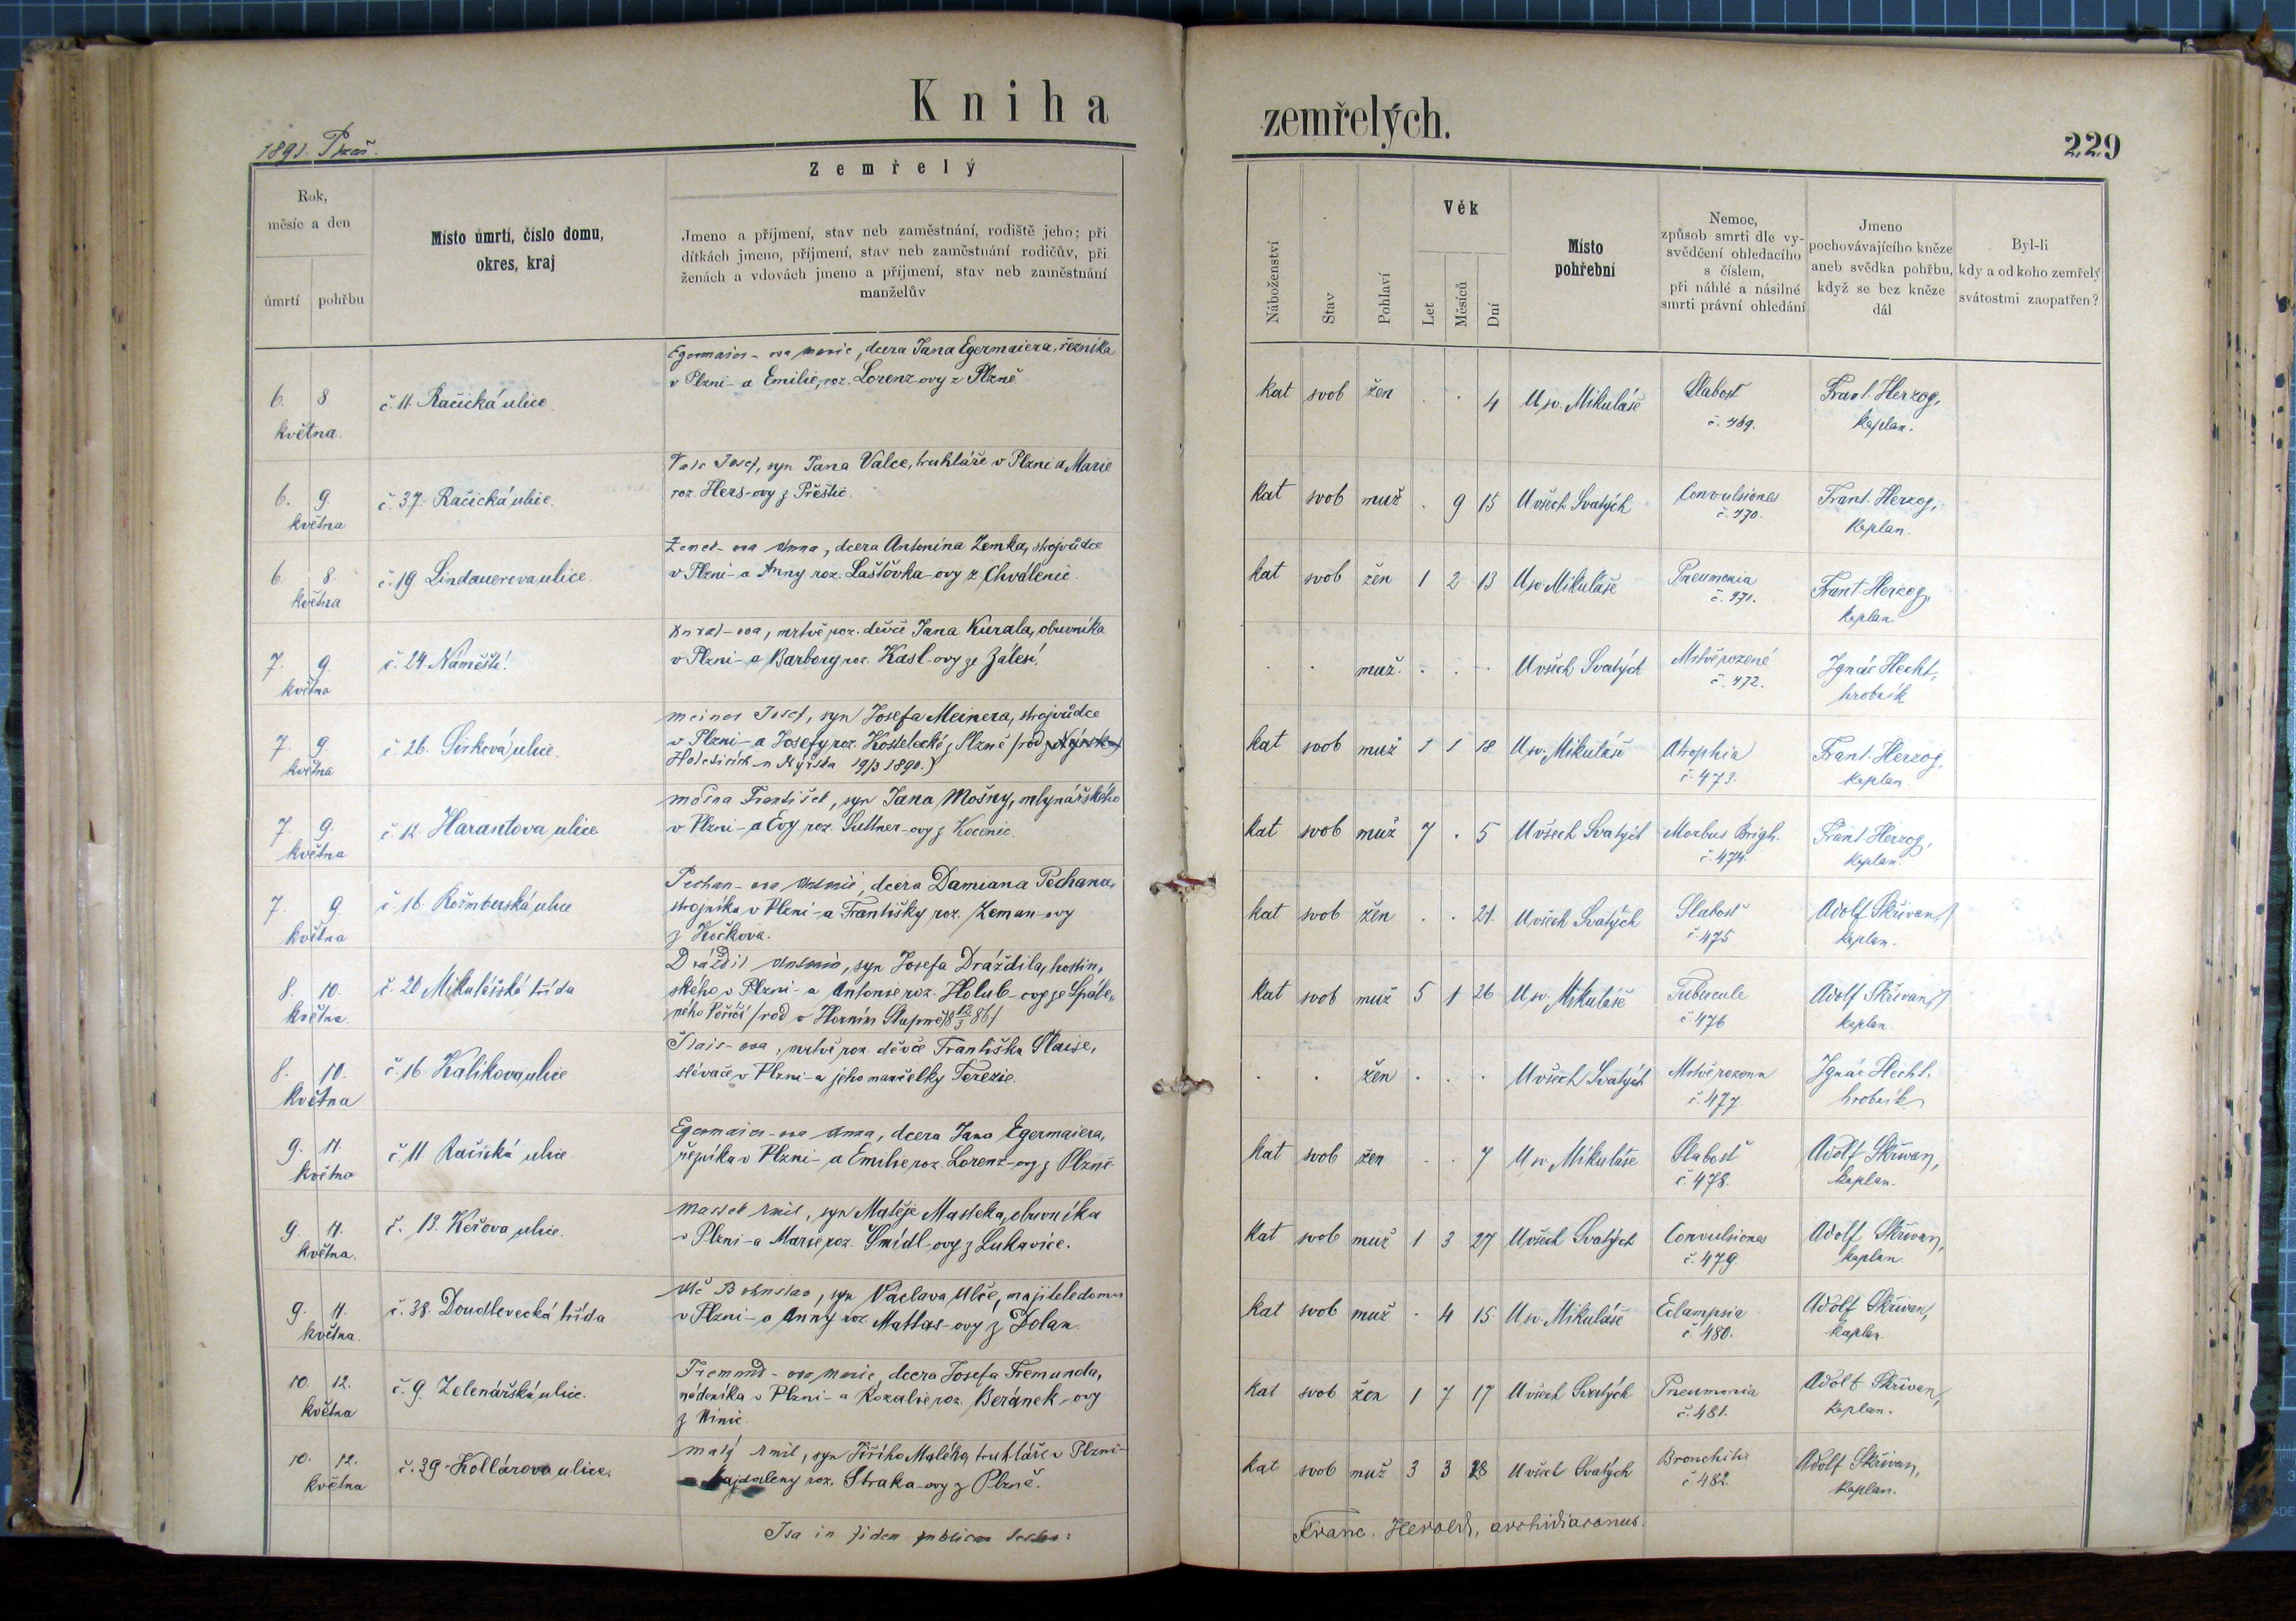 Kniha zemřelých.
1891.
229
Zemřelý
Rok,
měsíc a den
úmrtí pohřbu
Místo úmrtí, číslo domu,
okres, kraj
Jmeno a příjmení, stav neb zaměstnání, rodiště jeho; při
dítkách jmeno, příjmení, stav neb zaměstnání rodičův, při
ženách a vdovách jmeno a příjmení, stav neb zaměstnání
manželův
Náboženství
Stav
Pohlaví
Věk
Let
Měsíců
Dní
Místo
pohřební
Nemoc,
způsob smrti dle vy-
svědčení ohledacího
s číslem,
při náhlé a násilné
smrti právní ohledání
Jmeno
pochovávajícího kněze
aneb svědka pohřbu,
když se bez kněze
dál
Byl-li
kdy a od koho zemřelý
svátostmi zaopatřen?
Egermaier-ova Marie, dcera Jana Egermaiera, řezníka
v Plzni - a Emilie, roz. Lorenz-ovy z Plzně
6. 8 č. 11. Račická ulice. kat svob žen . . 4 U sv. Mikuláše Slabosť Frant. Herzog,
května. č. 469. kaplan.
Valc Josef, syn Jana Valce, truhláře v Plzni a Marie
roz. Hers-ovy z Přeštic.
6. 9. č. 37. Račická ulice. kat svob muž . 9 15 U všech Svatých Convulsiones Frant. Herzog,
května č. 470. kaplan.
Zemek-ova Anna, dcera Antonína Zemka, strojvůdce
v Plzni - a Anny roz. Lašťovka-ovy z Chválenic.
6. 8. č. 19 Lindauerova ulice. kat svob žen 1 2 13 U sv. Mikuláše Pneumonia Frant. Herzog,
května č. 471. kaplan
Kural-ova, mrtvě roz. děvče Jana Kurala, obuvníka
v Plzni - a Barbory roz. Kasl-ovy ze Zálesí.
7. 9. č. 24 Náměstí. . . muž. . . . U všech Svatých Mrtvě rozené Ignác Hecht,
května č. 472. hrobník
Meiner Josef, syn Josefa Meinera, strojvůdce
v Plzni - a Josefy roz. Kostelecké z Plzně (rod.
Holešicích u Nýrska 19/3 1890.)
7. 9. č. 26. Sirková ulice. kat svob muž 1 1 18 U sv. Mikuláše Atrophia Frant. Herzog,
května č. 473. kaplan
Mošna František, syn Jana Mošny, mlynářského
v Plzni - a Evy roz. Suttner-ovy z Kocenic.
7. 9. č. 12. Harantova ulice kat svob muž 7 . 5 U všech Svatých Morbus Brigh. Frant. Herzog,
května č. 474. kaplan.
Pechan-ova Antonie, dcera Damiana Pechana,
strojníka v Plzni - a Františky roz. Zeman-ovy
z Kočkova.
7. 9. č. 16. Rožmberská ulice kat svob žen . . 21. U všech Svatých Slabosť Adolf Skřivan,
května č. 475 kaplan.
Dráždil Antonín, syn Josefa Dráždila, hostin-
ského v Plzni - a Antonie roz. Holub-ovy ze Spále-
ného Poříčí (rod. v Horním
8. 10. č. 20 Mikulášská třída kat svob muž 5 1 26 U sv. Mikuláše Tubercule Adolf Skřivan,
května. č. 476 kaplan.
Slais-ova, mrtvě roz. děvče Františka Slaise,
slévače v Plzni - a jeho manželky Terezie.
8. 10. č. 16. Kalikova ulice . . žen . . . U všech Svatých Mrtvě rozena Ignác Hecht.
května č. 477. hrobník
Egermaier-ova Anna, dcera Jana Egermaiera,
řezníka v Plzni - a Emilie roz. Lorenz-ovy z Plzně.
9. 11. č. 11. Račická ulice kat svob žen . . 7 U sv. Mikuláše Slabosť Adolf Skřivan,
května č. 478. kaplan.
Mastek Emil, syn Matěje Masteka, obuvníka
v Plzni - a Marie roz. Šmídl-ovy z Lukavice.
9. 11. č. 13. Keřova ulice. kat svob muž 1 3 27 U všech Svatých Convulsiones Adolf Skřivan,
května. č. 479 kaplan
Ulč Bohuslav, syn Václava Ulče, majitele domu
v Plzni - a Anny roz. Mattas-ovy z Dolan.
9. 11. č. 38. Doudlevecká třída kat svob muž . 4 15 U sv. Mikuláše Eclampsia Adolf Skřivan,
května. č. 480. kaplan.
Fremund-ova Marie, dcera Josefa Fremunda,
nádeníka v Plzni - a Rozalie roz. Beránek-ovy
z Úinic
10. 12. č. 9. Zelenářská ulice. kat svob žen 1 7 17 U všech Svatých Pneumonia Adolf Skřivan,
května č. 481. kaplan.
Malý Emil, syn Jiřího Malého, truhláře v Plzni -
a Majdaleny roz. Straka-ovy z Plzně.
10. 12. č. 39. Kollárova ulice. kat svob muž 3 3 28 U všech Svatých Bronchitis Adolf Skřivan,
května č. 482. kaplan.
Ita in fidem publicam testor: Franc. Herold, archidiaconus.